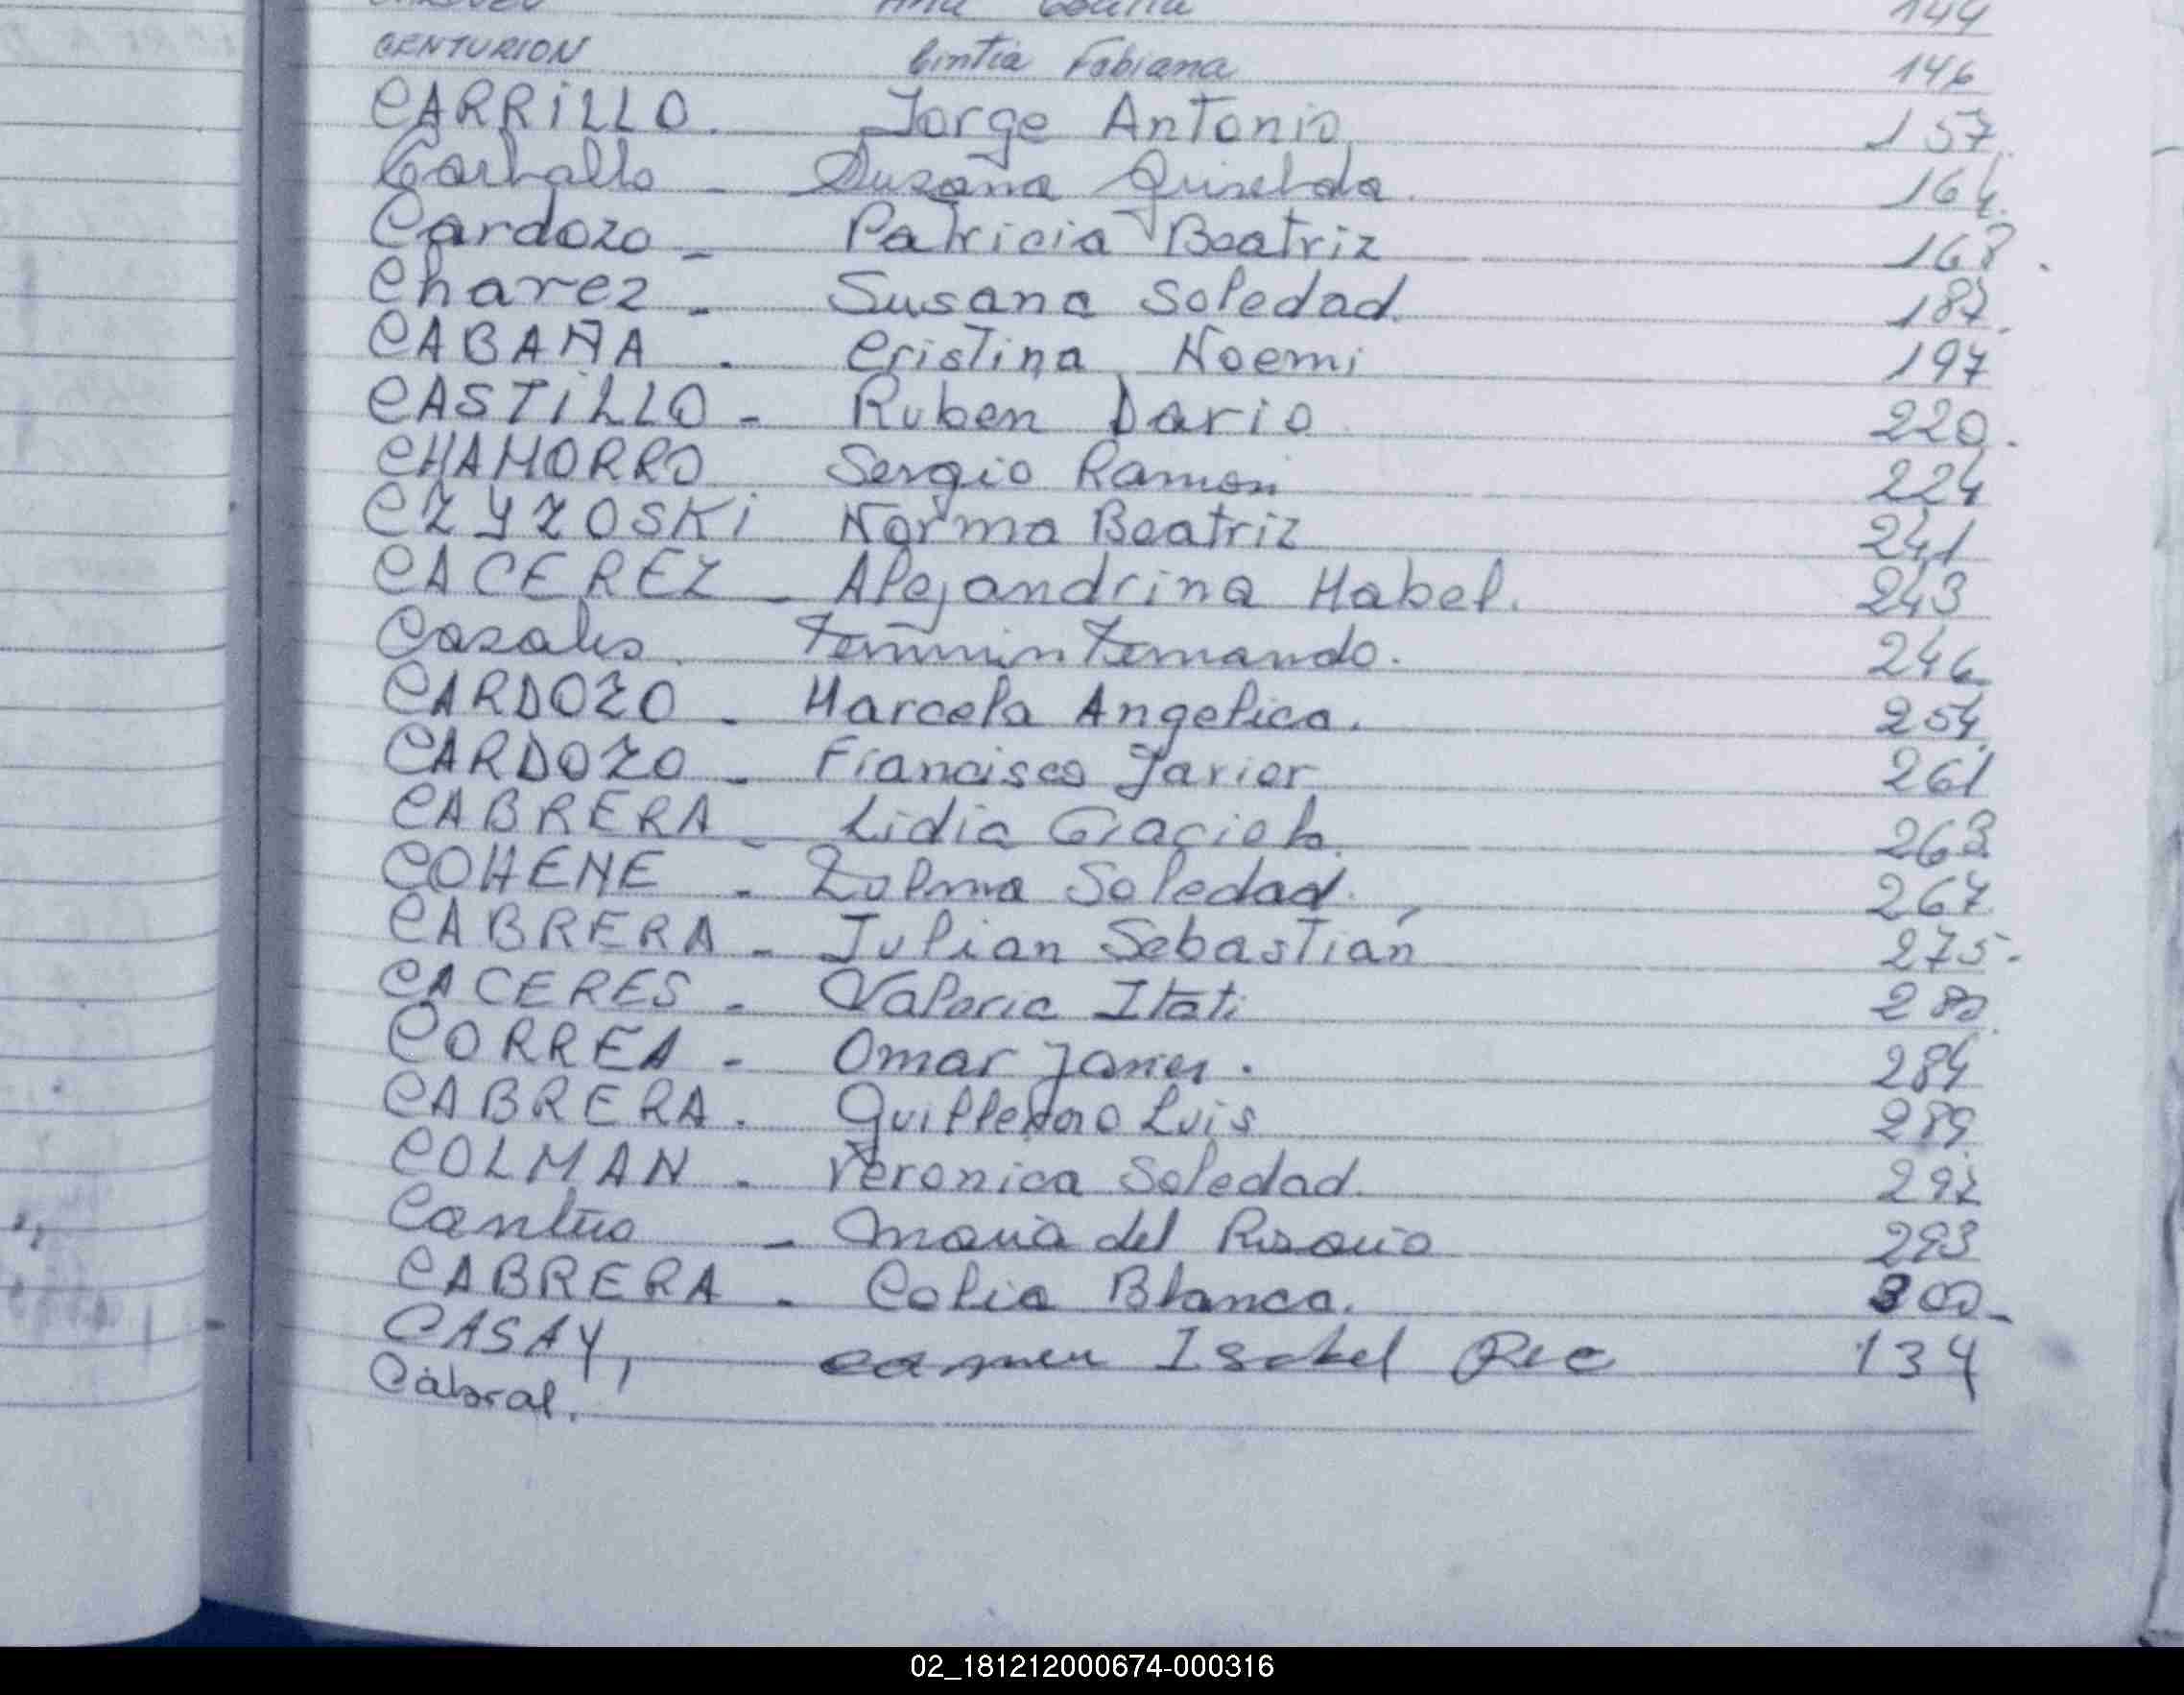 Ana 144
CENTURION Cintia Fabiana 146
CARRILLO. Jorge Antonio 157
Carballo - Susana Griselda. 164.
Cardozo - Patricia Beatriz 168.
Chavez - Susana Soledad. 187.
CABAÑA - Cristina Noemi 197
CASTILLO - Ruben Dario 220.
CHAMORRO Sergio Ramon 224
CZYZOSKI Norma Beatriz 241
CACEREZ - Alejandrina Mabel. 243
Casales. Fernando. 246
CARDOZO - Marcela Angelica. 254
CARDOZO - Francisco Javier 261
CABRERA - Lidia Graciela. 263
COHENE - Zulma Soledad. 267
CABRERA - Julian Sebastián 275-
CACERES - Valeria Itati 280
CORREA - Omar 284
CABRERA. Guillermo Luis 289
COLMAN - Veronica Soledad. 292
- Maria del Rosario 293
CABRERA - Celia Blanca. 300-
CASAY, Isabel 134
Cabral.
02_181212000674-000316